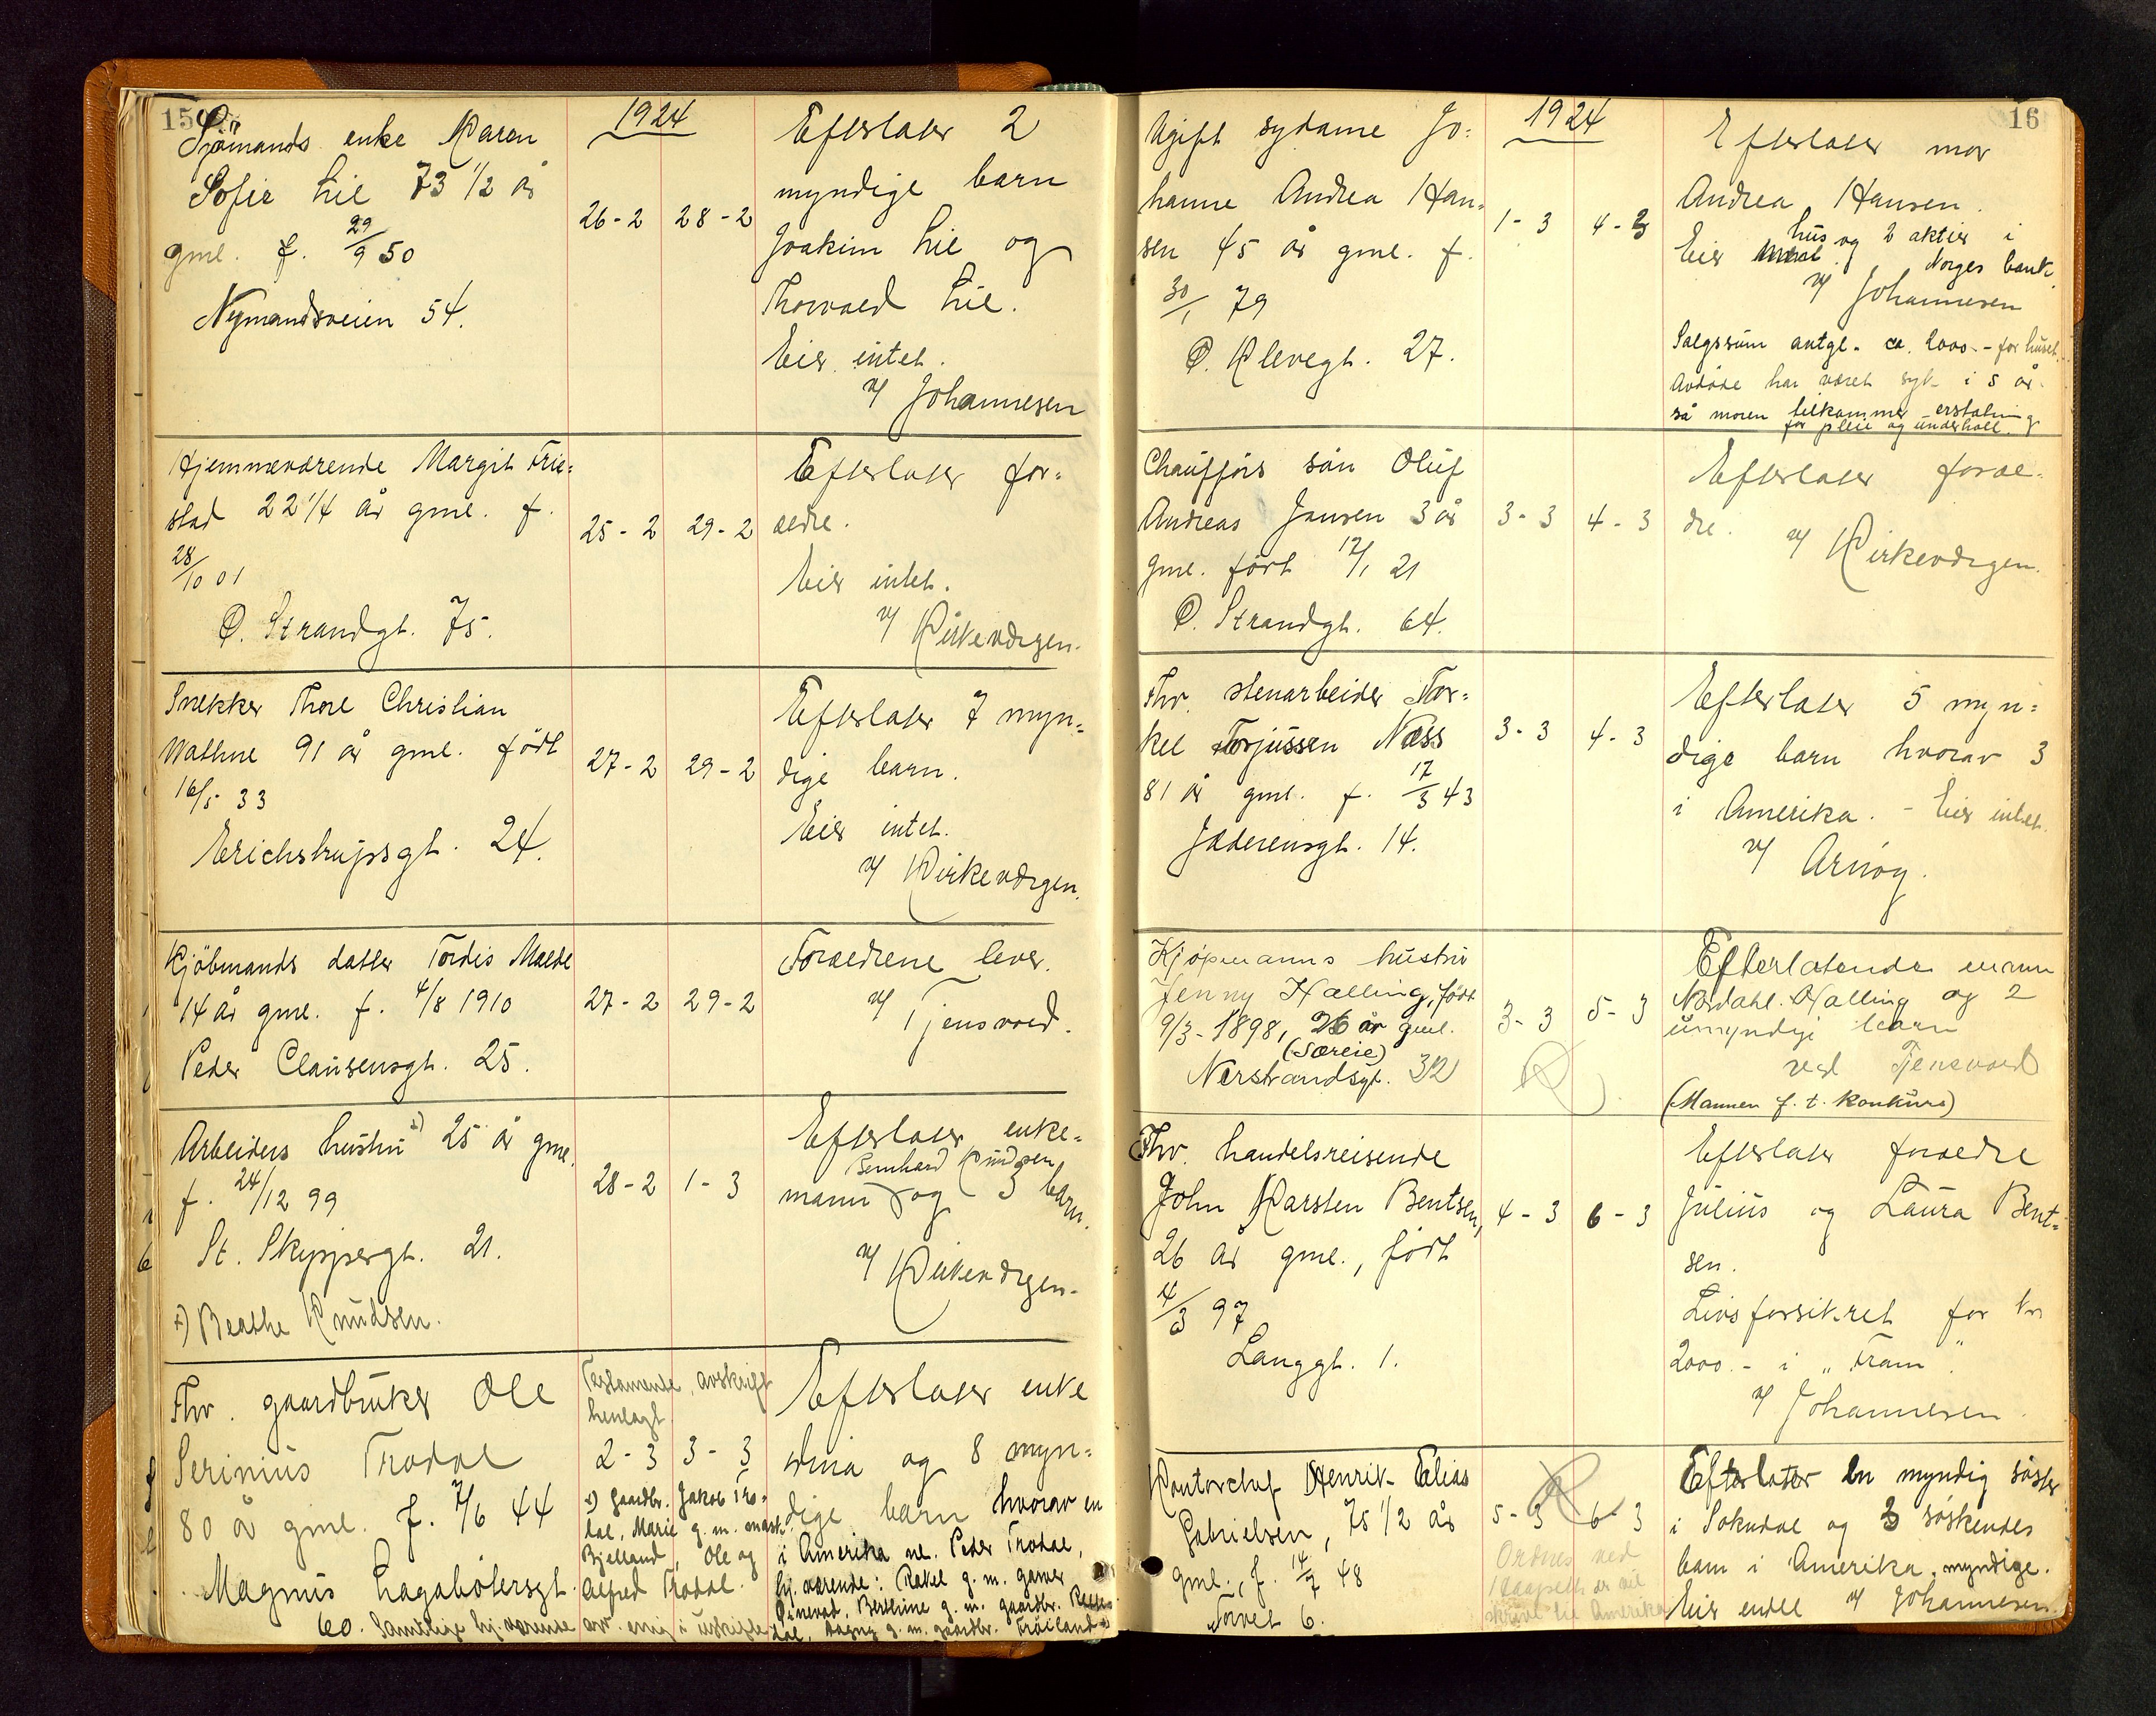 159
1924
Sjömands enke Karen
Sofie Lie 73 1/2 år
gml. f. 29/9 50
Nymandsveien 54.
26-2 28-2
Efterlater 2
myndige barn
Joakim Lie og
Thorvald Lie.
Eier intet.
v/ Johannesen
Hjemmeværende Margit Frie=
stad 22 1/4 år gml. f.
28/10 01
Ø. Strandgt. 75.
25-2 29-2
Efterlater for=
ældre.
Eier intet.
v/ Kirkevergen.
Snekker Thore Christian
Wathne 91 år gml. født
16/5 33
Erichstrupsgt. 24.
27-2 29-2
Efterlater 7 myn=
dige barn.
Eier intet.
v/ Kirkevergen.
Kjöbmands datter Tordis Malde
14 år gml. f. 4/8 1910
Peder Clausensgt. 25.
27-2 29-2
Forældrene lever.
v/ Tjensvold.
Arbeiders hustru x) 25 år gml.
f. 24/12 99
St. Skippergt. 21.
x) Beathe Knudsen.
28-2 1-3
Efterlater enke=
Bernhard Knudsen
mann og 3 barn.
v/ Kirkevergen.
Fhv. gaardbruker Ole
Serinius Tradal
80 år gml. f. 7/6 44
Magnus Lagabötersgt.
60. Samtlige hj. værende
Testamente, avskrift
henlagt.
2-3 3-3
x) Gaardbr. Jakob Tro-
dal, Marie g. m. mask.
Bjelland, Ole og
Alfred Trodal.
arv. enig i utskifte
Efterlater enke
Dina og 8 myn=
dige barn hvorav en
i Amerika nl. Peder Trodal,
hj. værende: Rakel g. m. garver
Berthine g. m. gaardbr.
dal, Dagny g. m. gaardbr. Fröiland x)
16
1924
Ugift sydame Jo=
hanne Andrea Han=
sen 45 år gml. f.
30/1 79
Ø. Klevegt. 27.
1-3 4-3
Efterlater mor
Andrea Hansen.
Eier hus og 2 aktier i
Norges bank.
v/ Johannesen
Salgssum antgl. ca. 2000.- for huset.
Avdöde har været syk i 5 år
så moren tilkommer erstatning
for pleie og underhold.
Chaufförs sön Oluf
Andreas Jansen 3 år
gml. född 12/1 21
Ø. Strandgt. 64.
3-3 4-3
Efterlater foræl-
dre.
v/ Kirkevergen.
Fhv. stenarbeider Tor=
kel Torjussen Næss
81 år gml. f. 17/3 43
Jæderensgt. 14.
3-3 4-3
Efterlater 5 myn=
dige barn hvorav 3
i Amerika. - Eier intet.
v/ Arnøy.
Kjöpmanns hustru
Jenny Halling, født
9/3-1898, 26 år gml.
(Særeie)
Nerstrandsgt. 32
3-3 5-3
Efterlatende mann
Nordahl Halling og 2
umyndige barn
ved Tjensvold
(Mannen f. t. konkurs)
Fhv. handelsreisende
John Karsten Bentsen,
26 år gml., född
4/3 97
Langgt. 1.
4-3 6-3
Efterlater forældre
Julius og Laura Bent=
sen.
Livsforsikret for kr
2000.- i "Fram".
v/ Johannesen.
Kontorchef Henrik Elias
Gabrielsen, 75 1/2 år
gml., f. 14/7 48
Torvet 6.
5-3 6-3
Ordnes ved
der vil
skrive til Amerika
Efterlater en myndig söster
i Sokndal og 3 söskendes
barn i Amerika, myndige.
Eier endel v/ Johannesen.